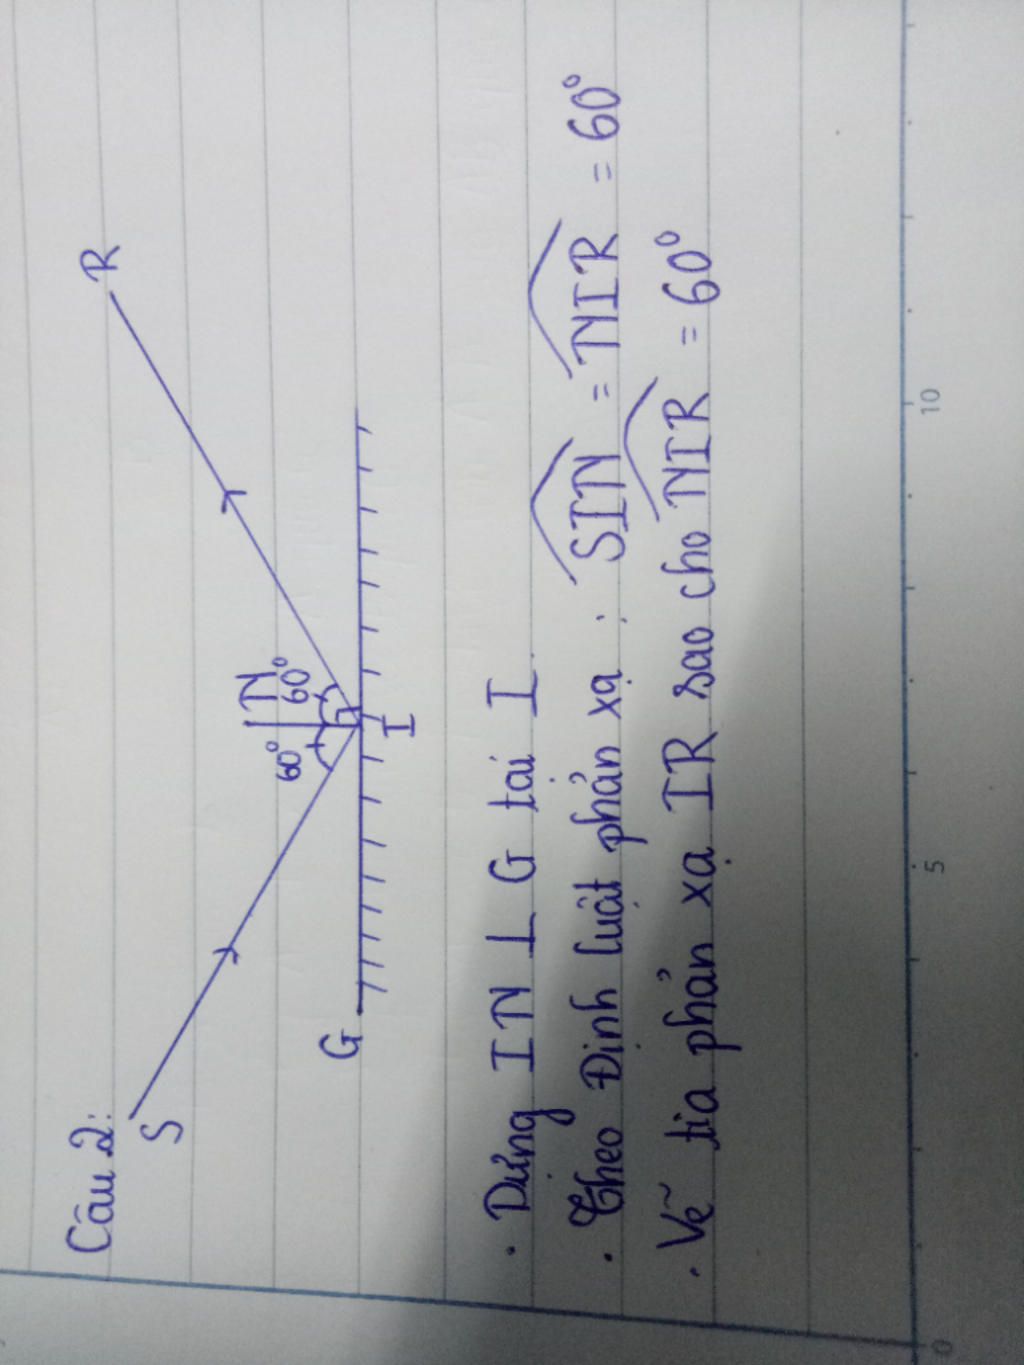 Câu 2:
S
R
N
60° 60°
G
I
· Dựng IN ⊥ G tại I
· Theo Định luật phản xạ : SIN = NIR = 60°
· Vẽ tia phản xạ IR sao cho NIR = 60°
0 5 10